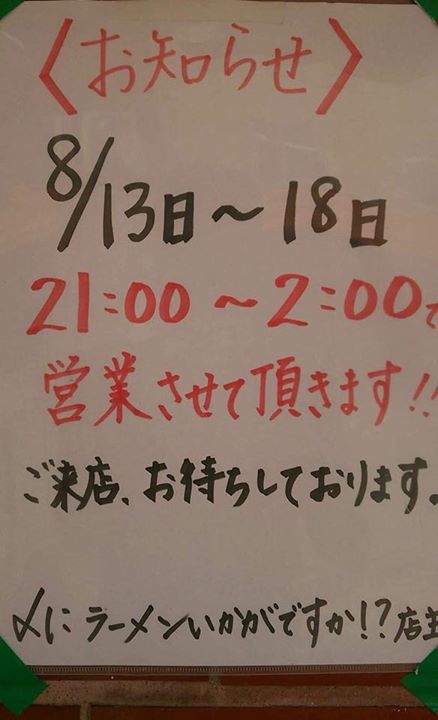 〈お知らせ〉
8/13日〜18日
21:00〜2:00で
営業させて頂きます!!
ご来店、お待ちしております。
〆にラーメンいかがですか!?店主